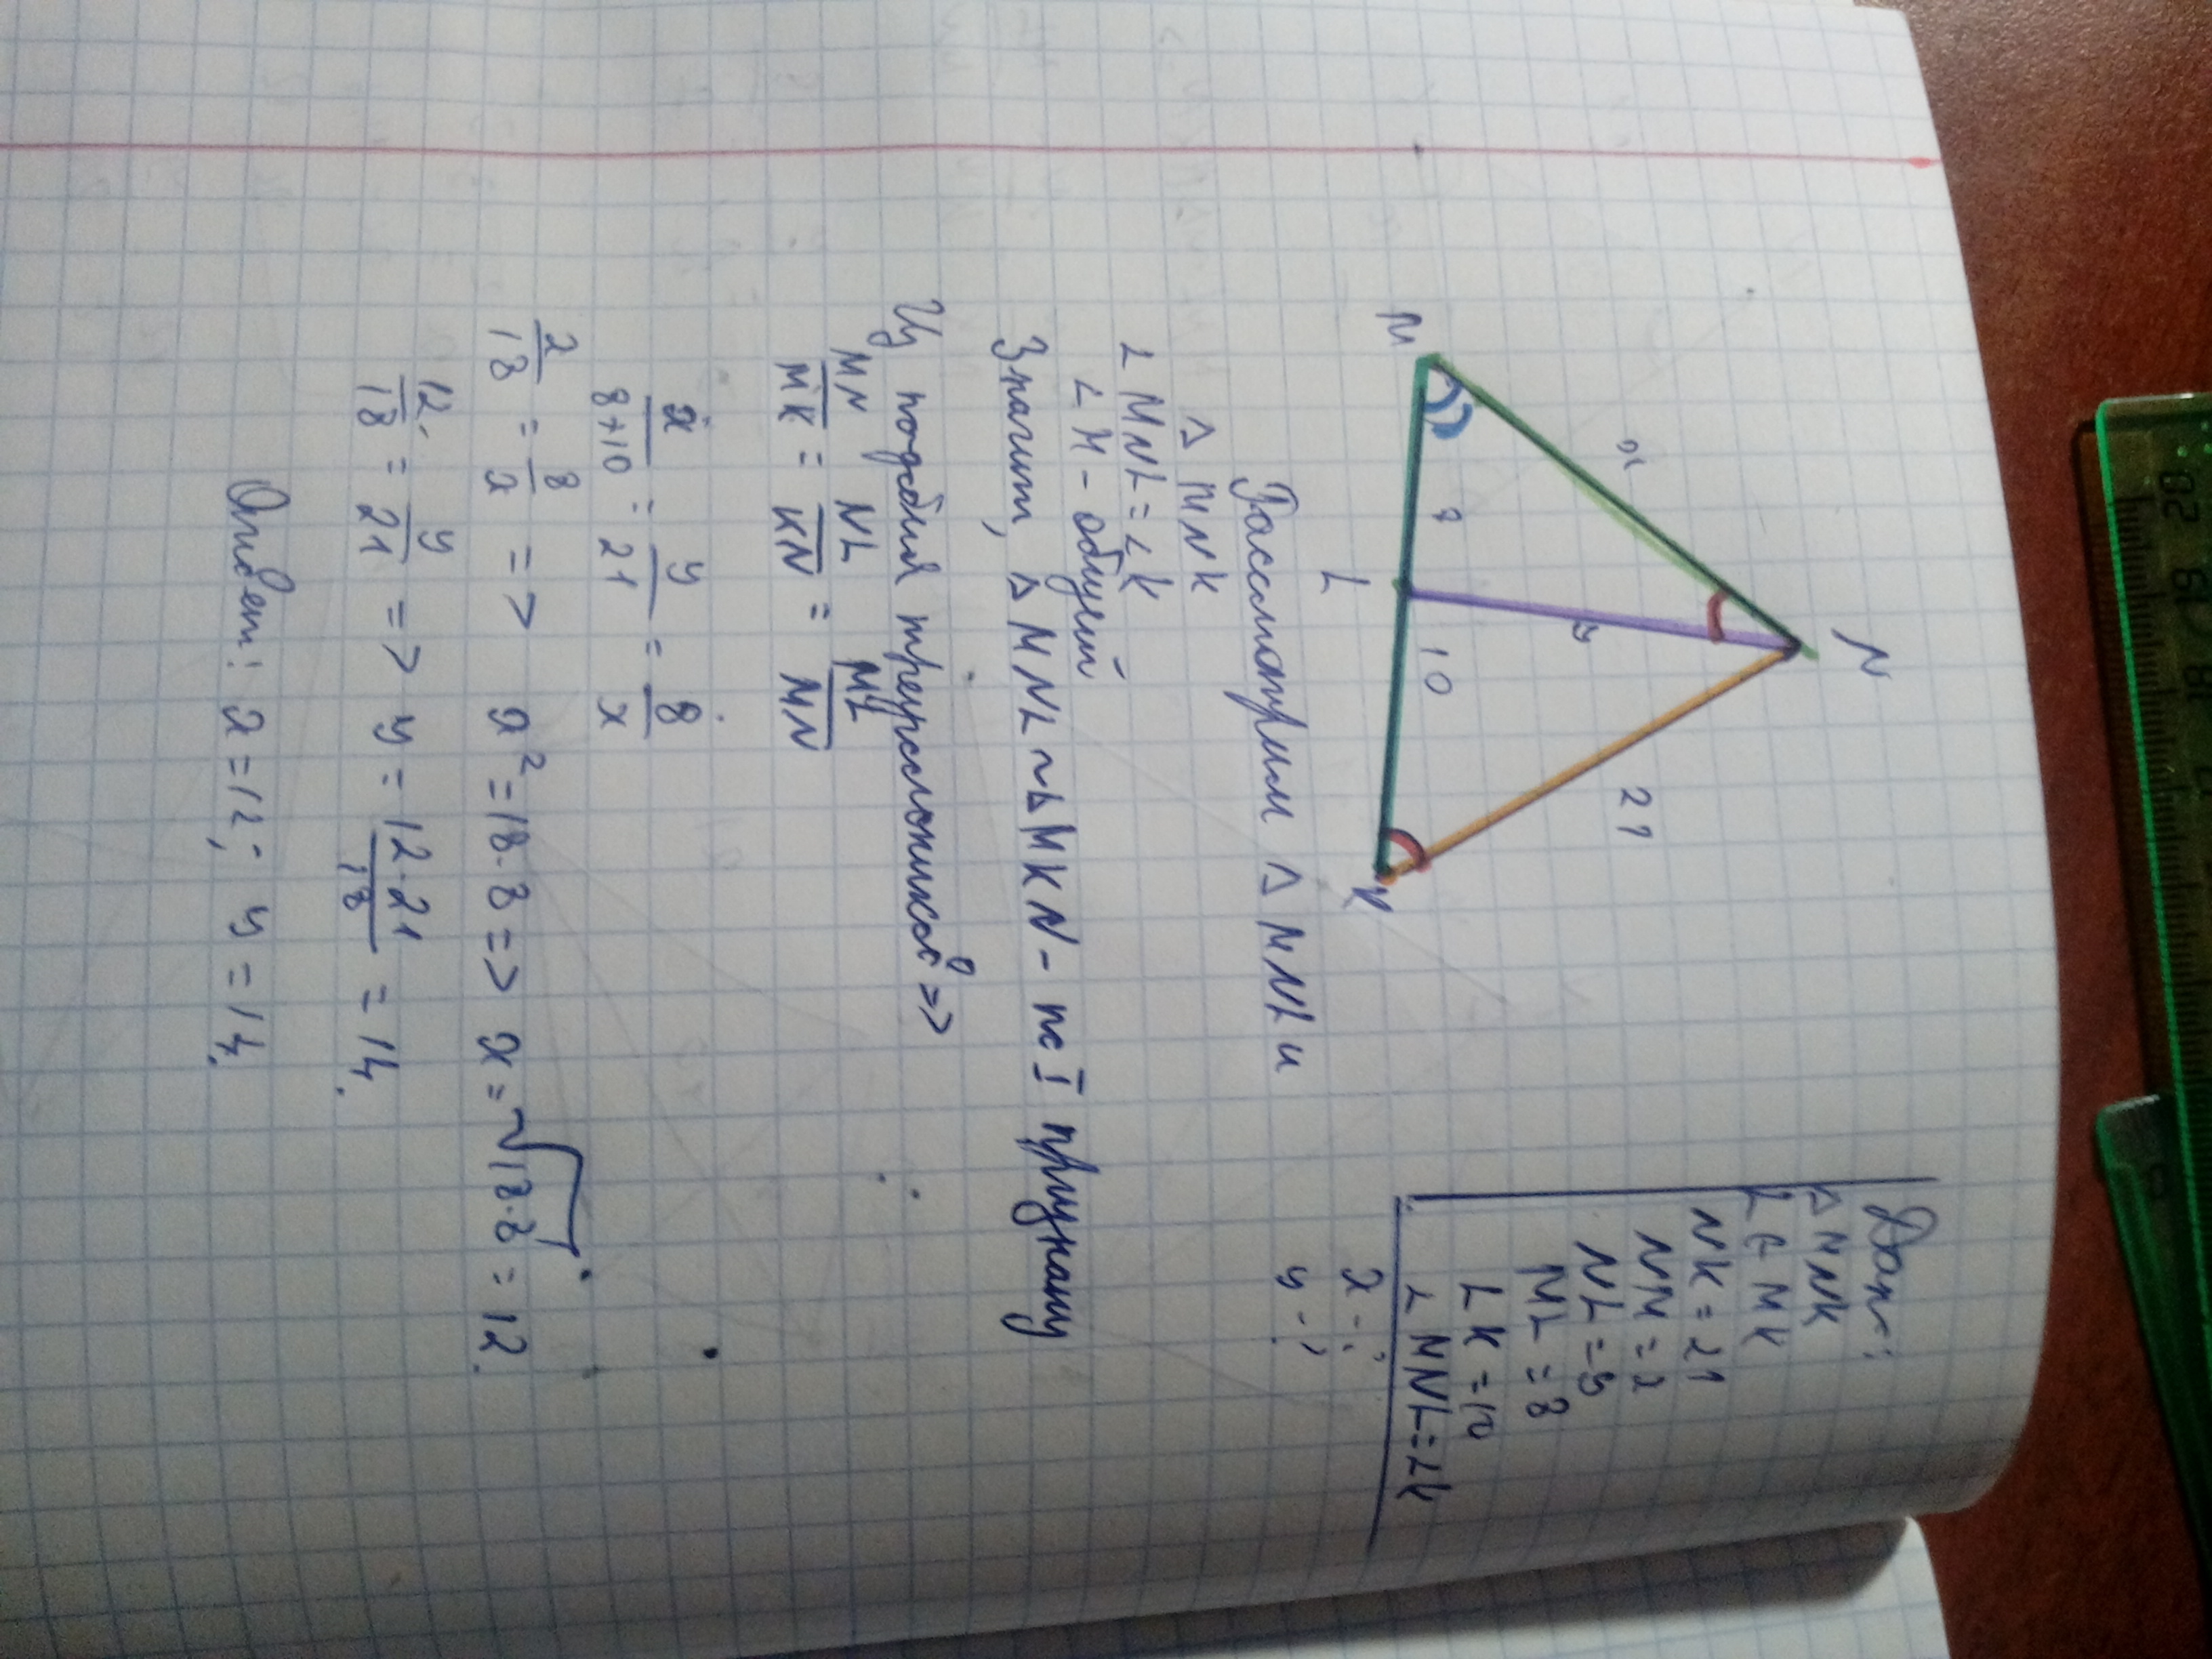 Дано:
△ MNK
L ∈ MK
NK = 21
NM = x
NL = y
ML = 8
LK = 10
∠ MNL = ∠K
x - ;
y - ;
N
x
y
21
M
8
10
K
L
Рассмотрим △ MNL и
△ MNK
∠ MNL = ∠K
∠ M - общий
Значит, △ MNL ~ △ MKN - по I признаку
Из подобия треугольников =>
MN/MK = NL/KN = ML/MN
x/8+10 = y/21 = 8/x
x/18 = 8/x => x² = 18·8 => x = √18·8 = 12.
12/18 = y/21 => y = 12·21/18 = 14.
Ответ: x = 12; y = 14.